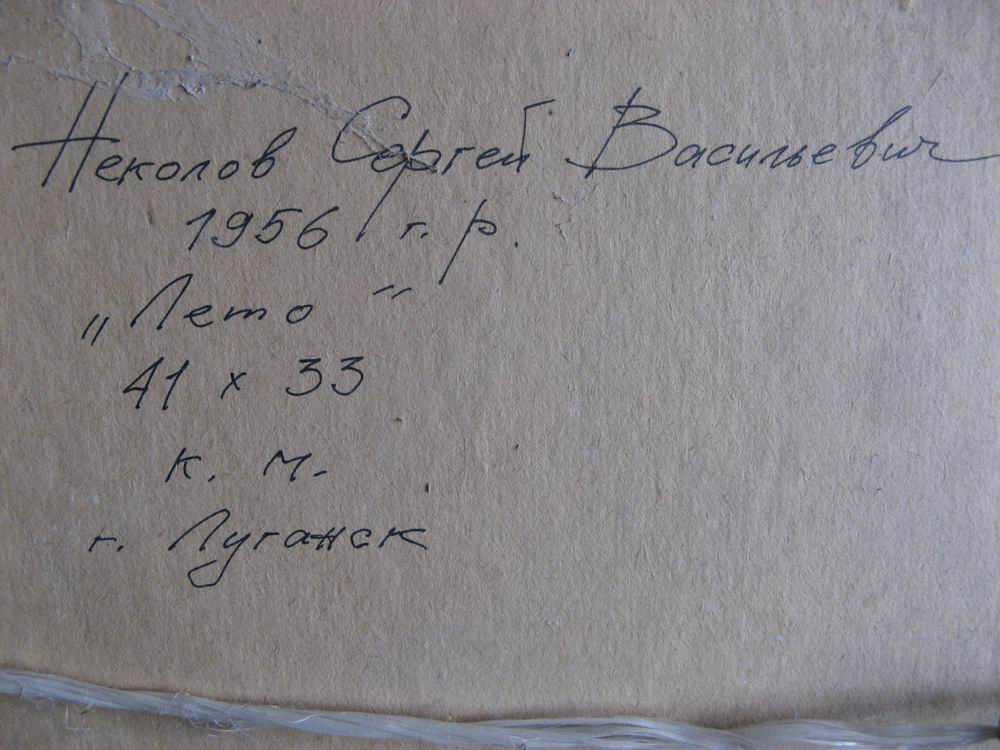 Неколов Сергей Васильевич
1956 г. р.
„Лето“
41 х 33
к. м.
г. Луганск